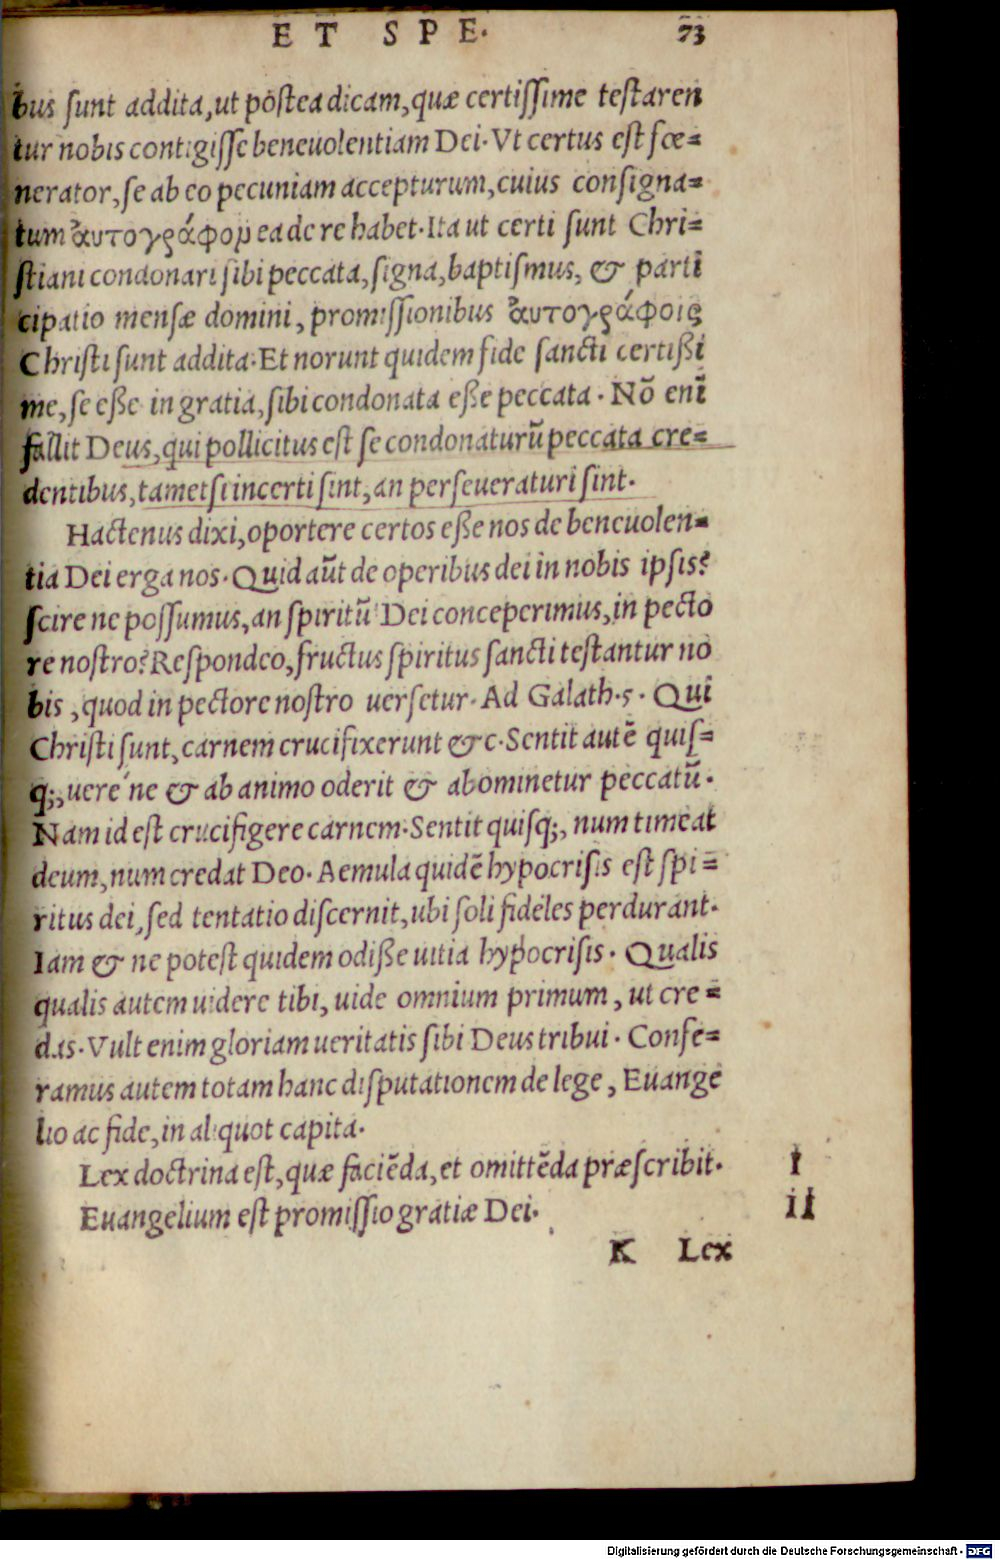 ET SPE. 73
bus sunt addita, ut postea dicam, quæ certissime testaren
tur nobis contigisse beneuolentiam Dei. Vt certus est fœ=
nerator, se ab eo pecuniam accepturum, cuius consigna=
tum ἀυτογράφομ ea de re habet. Ita ut certi sunt Chri=
stiani condonari sibi peccata, signa, baptismus, & parti
cipatio mensæ domini, promissionibus ἀυτογράφοις
Christi sunt addita. Et norunt quidem fide sancti certißi
me, se eße in gratia, sibi condonata eße peccata. Nō enī
fallit Deus, qui pollicitus est se condonaturū peccata cre=
dentibus, tametsi incerti sint, an perseueraturi sint.
Hactenus dixi, oportere certos eße nos de beneuolen=
tia Dei erga nos. Quid aūt de operibus dei in nobis ipsis?
scire ne possumus, an spiritū Dei conceperimus, in pecto
re nostro? Respondeo, fructus spiritus sancti testantur no
bis, quod in pectore nostro uersetur. Ad Galath. 5. Qui
Christi sunt, carnem crucifixerunt &c. Sentit autē quis=
q;, uere ne & ab animo oderit & abominetur peccatū.
Nam id est crucifigere carnem. Sentit quisq;, num timeat
deum, num credat Deo. Aemula quidē hypocrisis est spi=
ritus dei, sed tentatio discernit, ubi soli fideles perdurant.
Iam & ne potest quidem odiße uitia hypocrisis. Qualis
qualis autem uidere tibi, uide omnium primum, ut cre=
das. Vult enim gloriam ueritatis sibi Deus tribui. Confe=
ramus autem totam hanc disputationem de lege, Euange
lio ac fide, in aliquot capita.
Lex doctrina est, quæ faciēda, et omittēda præscribit. I
Euangelium est promissio gratiæ Dei. II
K Lex
Digitalisierung gefördert durch die Deutsche Forschungsgemeinschaft - DFG